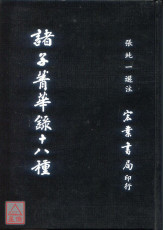 張純一選注
諸子菁華錄十八種
宏業書局印行